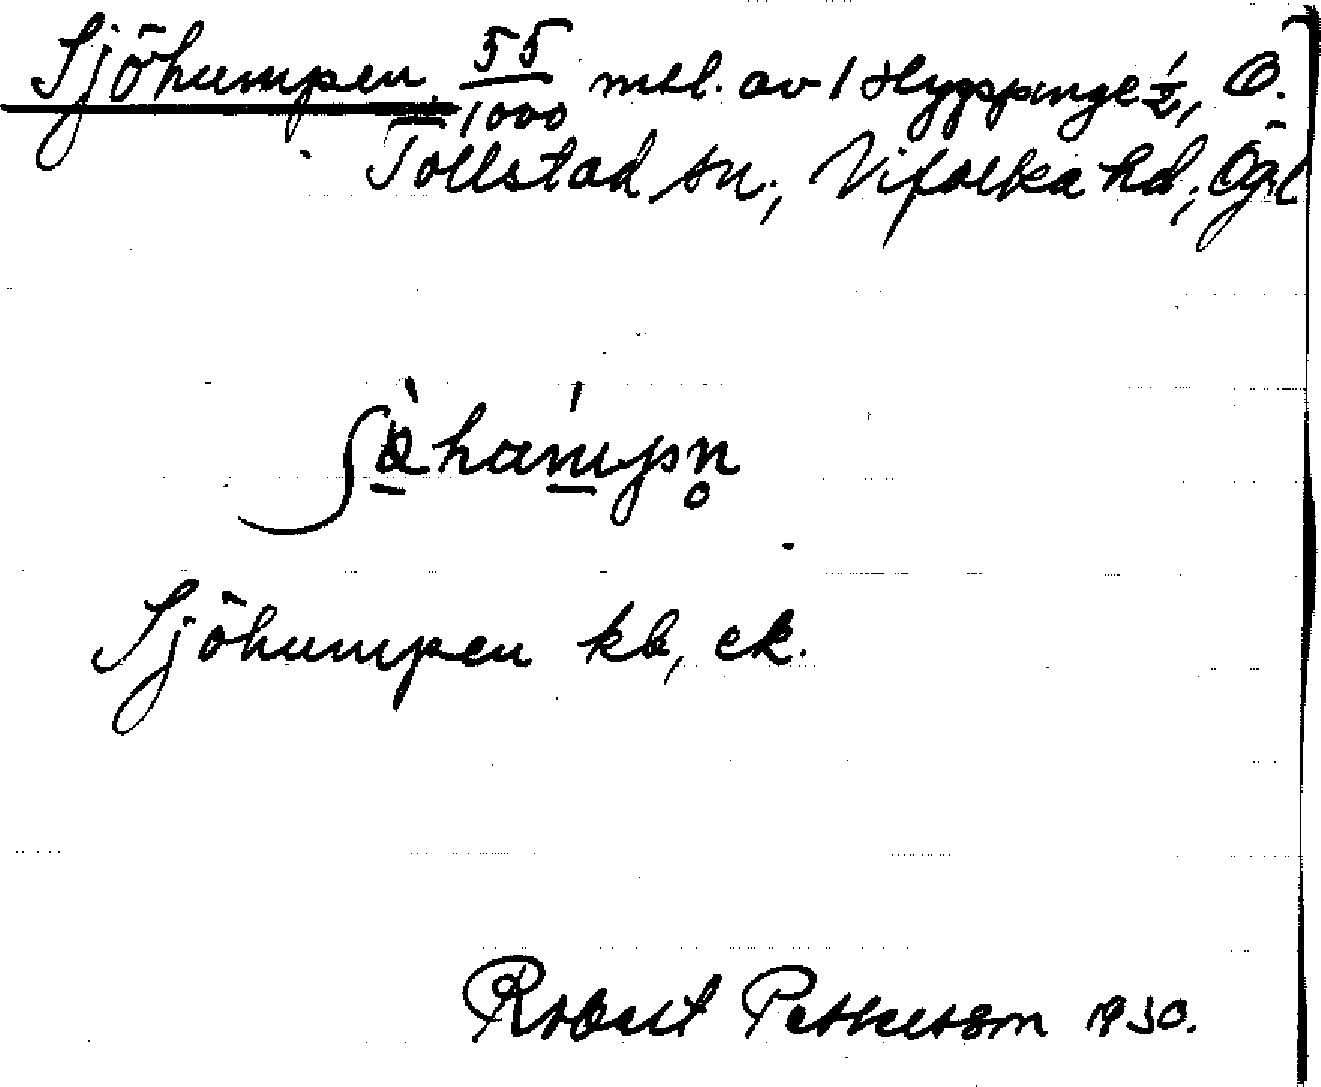 Sjöhumpen, 55/1000 mtl. av 1 Hygppinge ½, Ö.
Tollstad sn., Vifolka hd, Ögl
Sjöhumpen kb, ek.
Robert Pettersson 1930.